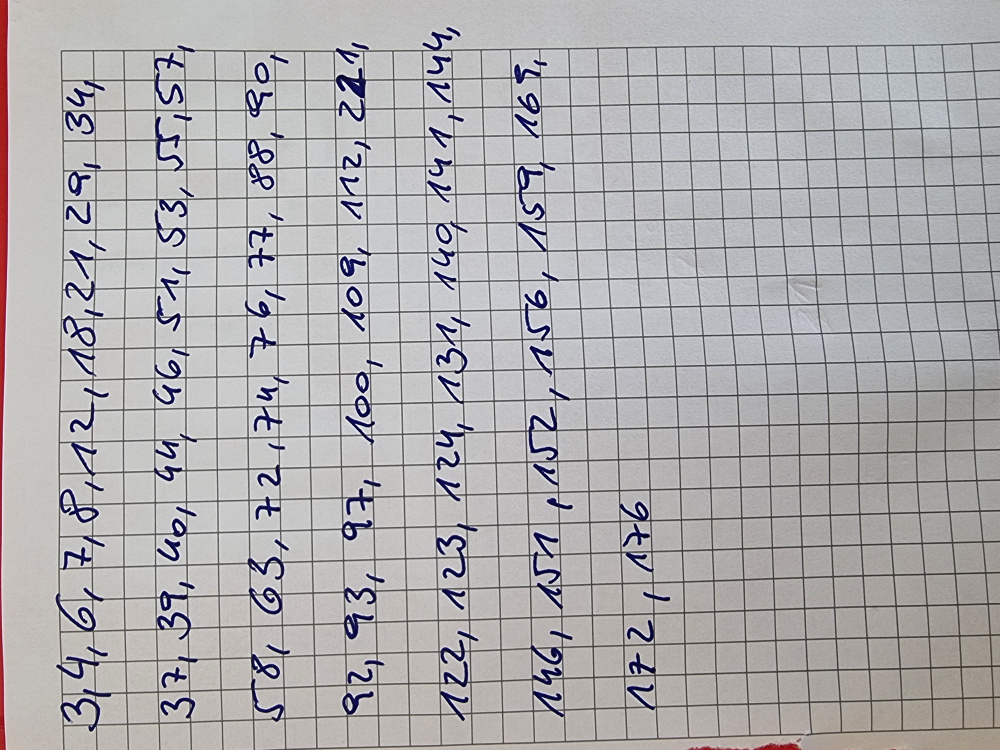 3,4,6,7,8,12,18,21,29,34,
37,39,40,44,46,51,53,55,57,
58,63,72,74,76,77,88,90,
92,93,97,100,109,112,221,
122,123,124,131,140,141,144,
146,151,152,156,159,169,
172,176